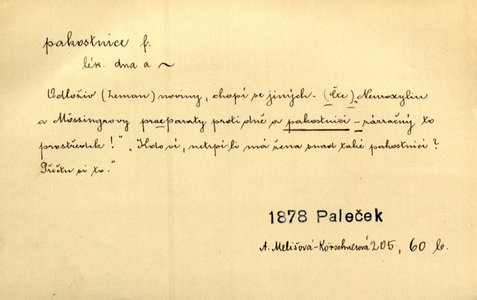 pakostnice f.
lék. dna a ~
Odloživ (Zeman) noviny, chopí se jiných - (čte) „Neuroxylin
a Mössingrovy praeparaty proti dně a pakostnici - zázračný to
prostředek!" „Kdo ví, netrpí-li má žena snad také pakostnicí?
Přečtu si to."
1878 Paleček
A. Melišová-Körschnerová 205, 60 b.